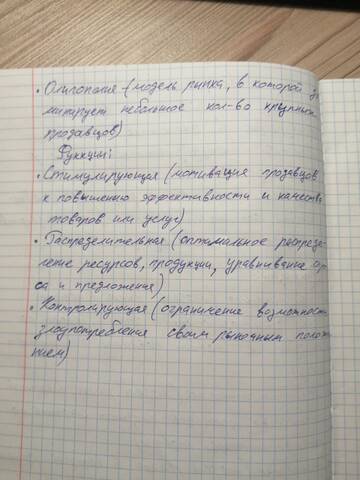 • Олигополия (модель рынка, в которой д
минирует небольшое кол-во крупных
продавцов)
Функции:
• Стимулирующая (мотивация продавцов
к повышению эффективности и качества
товаров или услуг)
• Распределительная (оптимальное распреде
ление ресурсов, продукции, уравнивание спро
са и предложения)
• Контролирующая (ограничение возможности
злоупотребления своим рыночным полож
нием)